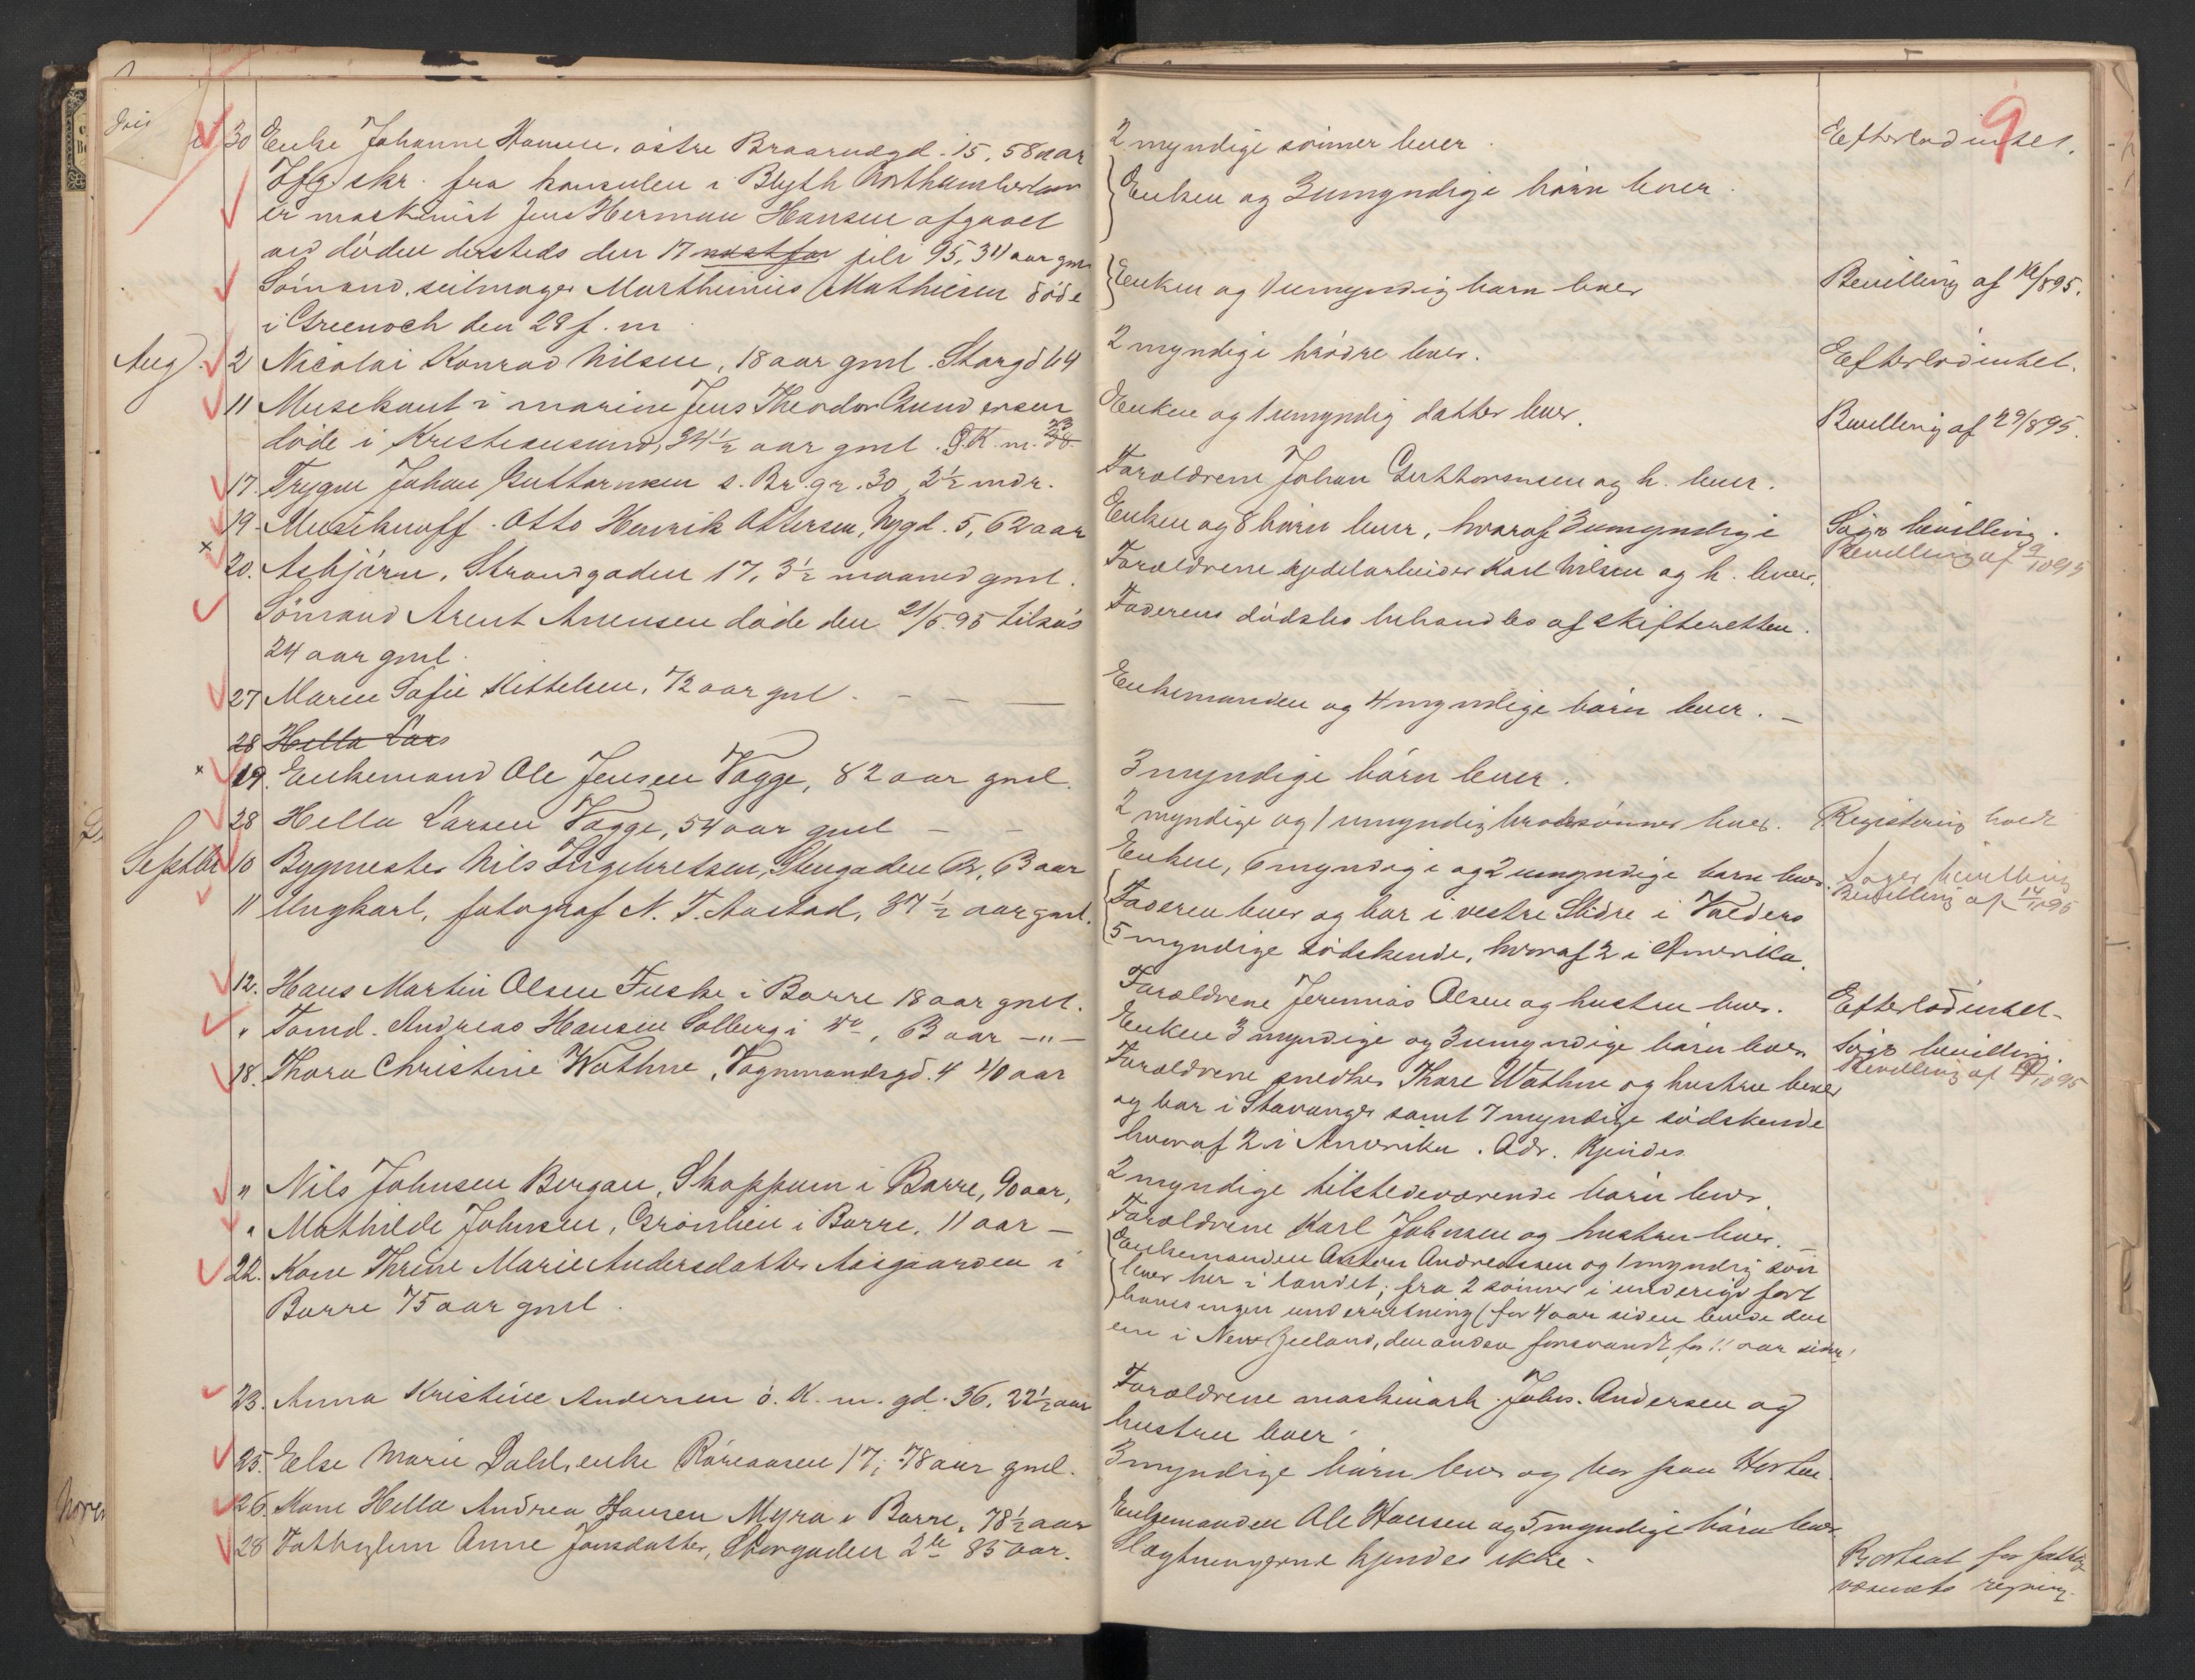 9
30 Enke Johanne Hansen, østre Braarudgd. 15, 58 aar
2 myndige sønner lever.
Efterlod intet.
Ifg. skr. fra konsulen i Blyth Northumberland
Enken og 3 umyndige børn lever.
er maskinist Jens Herman Hansen afgaaet
ved døden dersteds den 17 juli 95, 34 aar gml
Sømand, seilmager Marthinius Mathiesen døde
Enken og 1 umyndig barn lever
Bevilling af 14/8 95.
i Greenock den 29 f. m
Aug. 2 Nicolai Konrad Nilsen, 18 aar gml. Storgd 64
2 myndige brødre lever.
Efterlod intet.
11 Musikant i marinen Jens Theodor Gundersen
Enken og 1 umyndig datter lever.
Bevilling af 29/8 95.
døde i Kristiansund, 34½ aar gml.
17. Trygve Johan Guttormsen s. Br. gr. 30, 2½ mdr.
Forældrene Johan Guttormsen og h. lever.
19. Musikuoff. Otto Henrik Ottersen, Nygd. 5, 62 aar
Enken og 8 børn lever, hvoraf 3 umyndige
Søgt bevilling.
Bevilling af 9/10 95
20. Asbjørn, Strandgaden 17, 3½ maaned gml.
Forældrene Karl Nilsen og h. lever.
Sømand Arent Arensen døde den 21/5 95 tilsøs
Faderens dødsbo behandles af skifteretten.
24 aar gml.
27 Maren Sofie Kittelsen, 72 aar gml. — —
Enkemanden og 4 myndige børn lever. —
28 Hella Lars
19. Enkemand Ole Jensen Vagge, 82 aar gml.
3 myndige børn lever.
28 Hella Larsen Vagge, 54 aar gml — —
2 myndige og 1 umyndig brodersønner lever.
Registrering holdt
Septbr 10 Bygmester Nils Ingebretsen, Stengaden 62, 63 aar
Enken, 6 myndige og 2 umyndige børn lever.
Søger bevilling
Bevilling af 14/10 95
11 Ungkarl, fotograf N. T. Aastad, 37½ aar gml.
Faderen lever og bor i vestre Slidre i Valders
5 myndige sødskende, hvoraf 2 i Amerika.
12. Hans Martin Olsen Fuske i Borre 18 aar gml.
Forældrene Jeremias Olsen og hustru lever.
Efterlod intet.
" Tømd. Andreas Hansen Solberg i do, 63 aar —"—
Enken 3 myndige og 3 umyndige børn lever.
Søgt bevilling.
18. Thora Christine Wathne, Vognmandsgd. 4 40 aar
Forældrene snedker Thore Wathne og hustru lever
og bor i Stavanger samt 7 myndige sødskende
hvoraf 2 i Amerika. Adr. kjendes
" Nils Johnsen Bergan, Skoppum i Borre, 90 aar,
2 myndige tilstedeværende børn lever.
" Mathilde Johnsen, Grønlien i Borre, 11 aar —
Forældrene Karl Johnsen og hustru lever. —
22. Kone Thrine Marie Andersdatter Aasgaarden i
Enkemanden Anton Andreassen og 1 myndig søn
lever her i landet; fra 2 sønner i udenrigs fart
Borre 75 aar gml.
haves ingen underretning (for 4 aar siden levede den
ene i New Zeeland, den anden forsvandt for 11 aar siden)
23. Anna Kristine Andersen ø. K. m. gd. 36, 22½ aar
Forældrene maskinarb. Johs. Andersen og
hustru lever.
25. Else Marie Dahl, enke Røreaasen 17, 78 aar gml.
3 myndige børn lever og bor paa Horten
26. Kone Hella Andrea Hansen Myra i Borre, 78½ aar
Enkemanden Ole Hansen og 5 myndige børn lever.
28 Fattiglem Anne Jonsdatter, Storgaden 2de 85 aar.
Slægtningerne kjendes ikke.
Bortsat for fattig
væsenets regning.